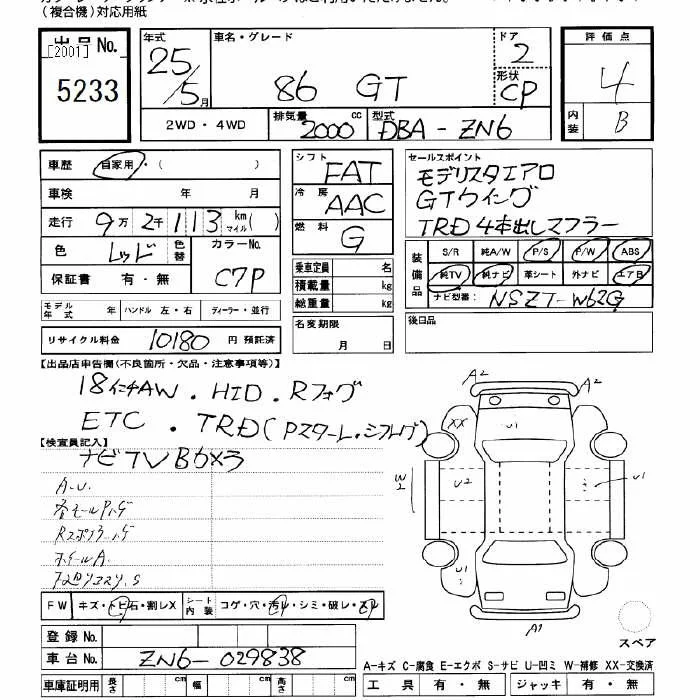 (複合機)対応用紙
出品No.
[2001]
5233
年式 25/5月
車名・グレード 86 GT
ドア 2
形状 CP
評価点 4
内装 B
2WD・4WD
排気量 2000 cc
型式 DBA-ZN6
車歴 自家用・( )
車検 年 月
走行 9万2千113 km マイル( )
色 レッド 色替 カラーNo. C7P
保証書 有・無
モデル年式 年 ハンドル 左・右 ディーラー・並行
リサイクル料金 10180 円 預託済
シフト FAT
冷房 AAC
燃料 G
乗車定員 名
積載量 kg
総重量 kg
名変期限 月 日
セールスポイント
モデリスタエアロ
GTウイング
TRD 4本出しマフラー
装備品
S/R 純A/W P/S P/W ABS
純TV 純ナビ 革シート 外ナビ エアB
ナビ型番: NSZT-W62G
後日品
【出品店申告欄(不良箇所・欠品・注意事項等)】
18インチAW・HID・Rフォグ
ETC・TRD(Pスタート・シフトノブ)
【検査員記入】
ナビTVBカメラ
A.U.
ホイールA.
FW キズ・トビ石・割レX シート内装 コゲ・穴・汚レ・シミ・破レ・スレ
登録No.
車台No. ZN6-029838
車庫証明用 長さ cm 幅 cm 高さ cm
A2
A2
XX
U1
W2
U2
U1
U1
A1
スペア
A-キズ C-腐食 E-エクボ S-サビ U-凹ミ W-補修 XX-交換済
工具 有・無 ジャッキ 有・無